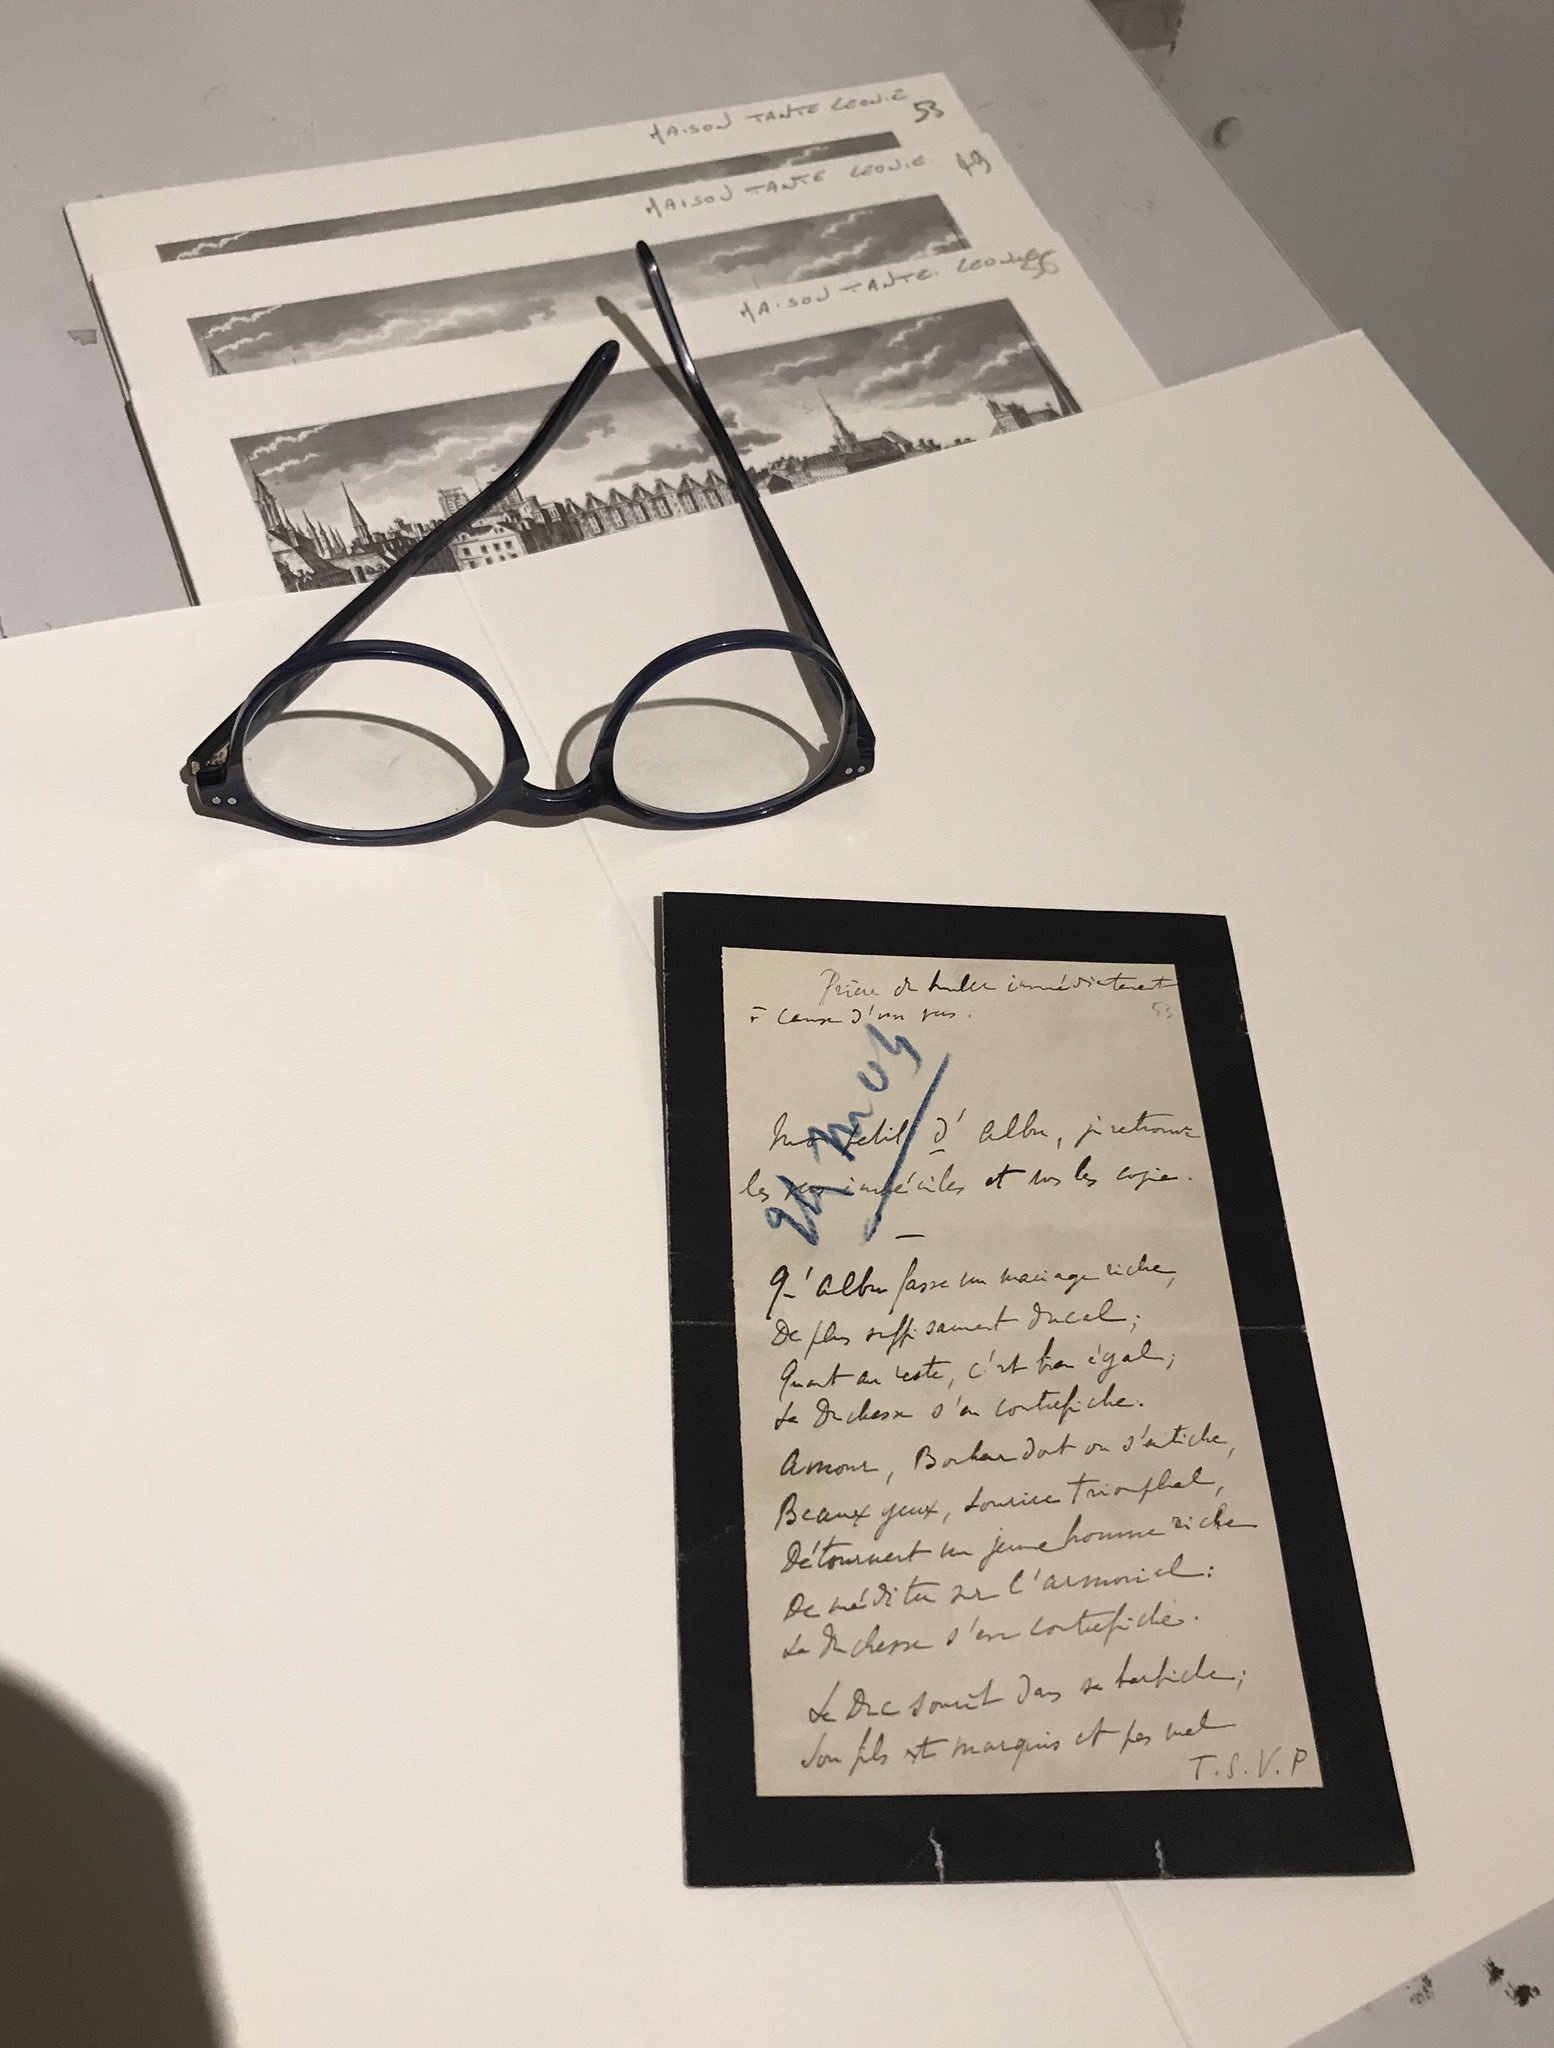 MAISON TANTE LEONIE 53
MAISON TANTE LEONIE 49
MAISON TANTE LEONIE
Prière de brûler immédiatement
à cause d'un vers.
53
24 nov
Mon petit d'Albu, je retrouve
les vers imbéciles et vous les copie.
—
Qu'Albu fasse un mariage riche,
De plus suffisament ducal;
Quant au reste, c'est bien égal;
La Duchesse s'en contrefiche.
Amour, Bonheur dont on s'entiche,
Beaux yeux, Sourire triomphal,
Détournent un jeune homme riche
De méditer sur l'armorial:
La Duchesse s'en contrefiche.
Le Duc sourit dans sa barbiche;
Son fils est marquis et pas mal
T.S.V.P